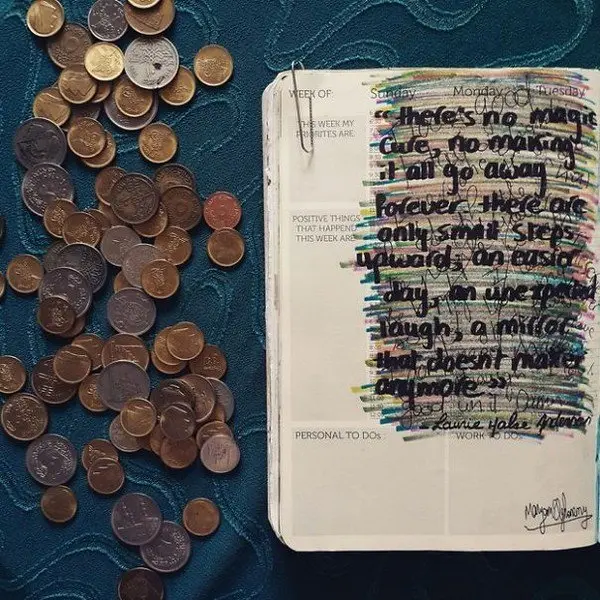 WEEK OF:
Sunday
Monday
Tuesday
THIS WEEK MY
PRIORITES ARE
POSITIVE THINGS
THAT HAPPEND
THIS WEEK ARE
"there's no magic
Cure, no making
it all go away
Forever there are
only small steps
upward; an easier
day, an unexpected
laugh, a mirror
that doesn't matter
anymore"
- Laurie Halse Anderson
PERSONAL TO DOs
WORK TO DOs